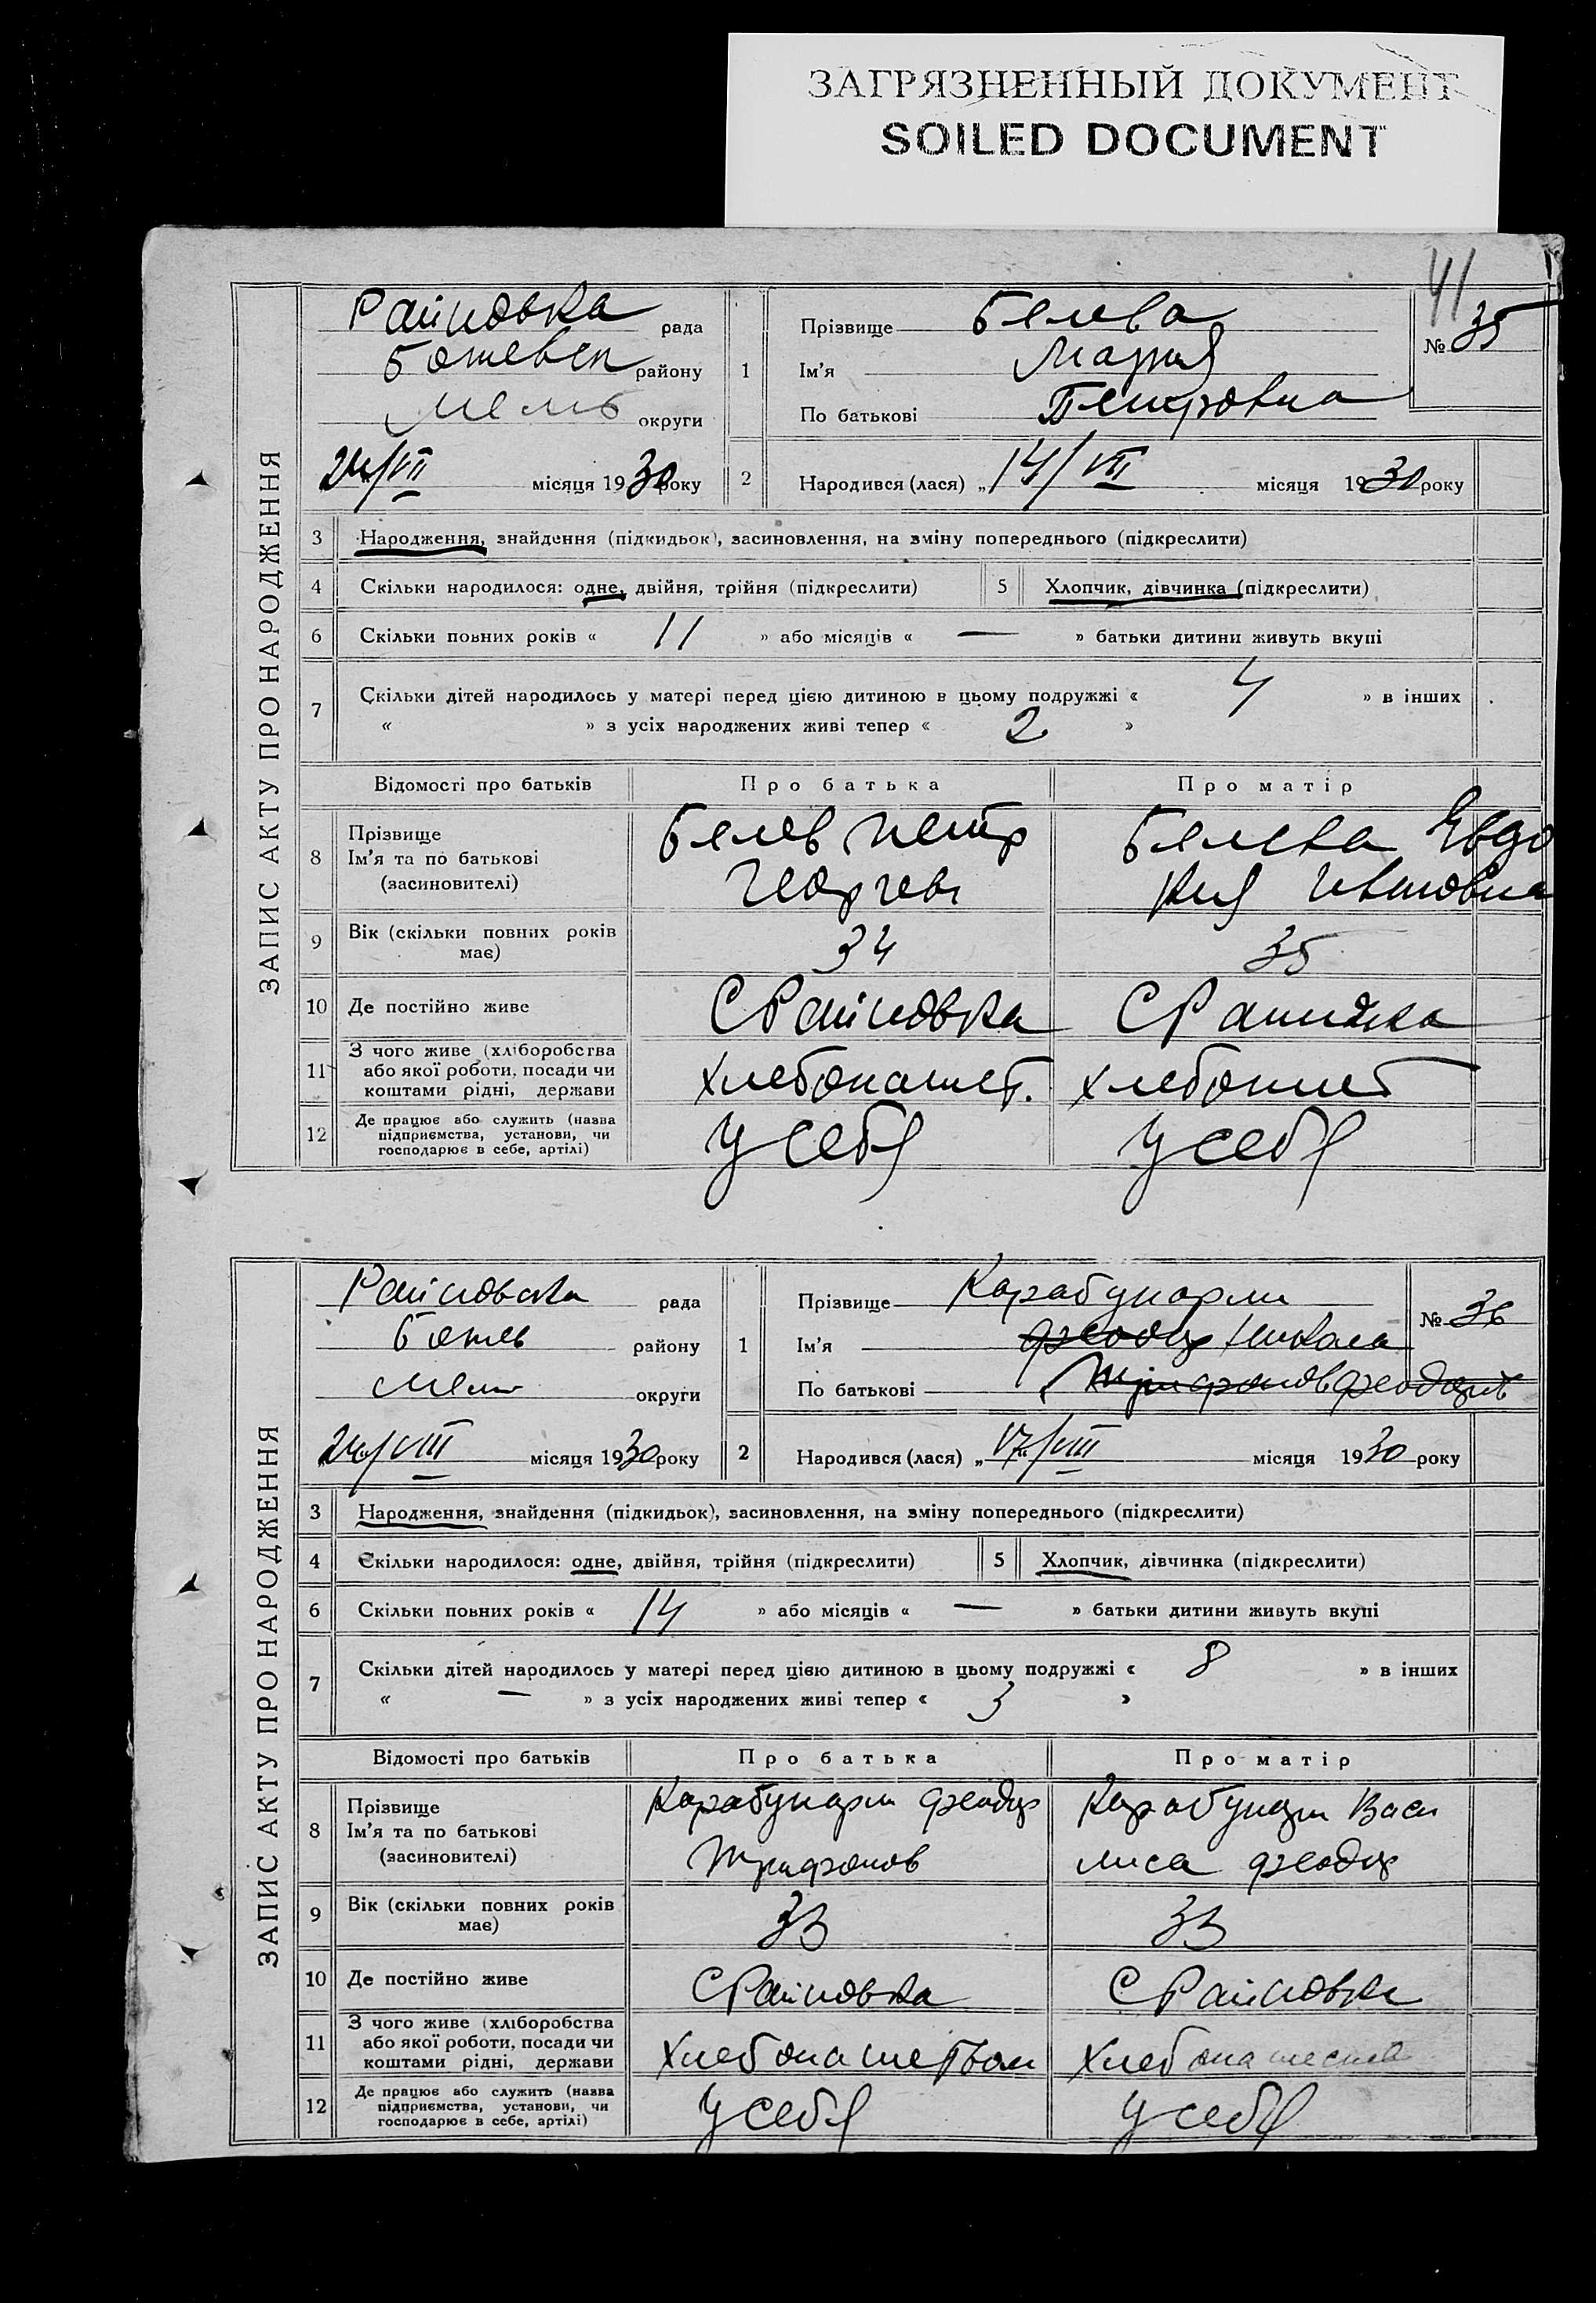 ЗАГРЯЗНЕННЫЙ ДОКУМЕНТ
SOILED DOCUMENT
41
ЗАПИС АКТУ ПРО НАРОДЖЕННЯ
Райновка рада
район
Мель округи
24/VII місяця 1930 року
1 Прізвище Белева
Ім'я Мария
По батькові Петровна
№ 35
2 Народився (лася) „14/VII місяця 1930 року
3 Народження, знайдення (підкидьок), засиновлення, на зміну попереднього (підкреслити)
4 Скільки народилося: одне, двійня, трійня (підкреслити) 5 Хлопчик, дівчинка (підкреслити)
6 Скільки повних років « 11 » або місяців « — » батьки дитини живуть вкупі
7 Скільки дітей народилось у матері перед цією дитиною в цьому подружжі « 4 » в інших
« » з усіх народжених живі тепер « 2 »
Відомості про батьків Про батька Про матір
8 Прізвище Ім'я та по батькові (засиновителі)
Белев Петр Белева Евдо
Георгев кия Ивановна
9 Вік (скільки повних років має) 34 35
10 Де постійно живе С Райновка С
11 З чого живе (хліборобства або якої роботи, посади чи коштами рідні, держави Хлебопашет.
12 Де працює або служить (назва підприємства, установи, чи господарює в себе, артілі) У себя У себя
ЗАПИС АКТУ ПРО НАРОДЖЕННЯ
Райновска рада
Божев району
Мели округи
24/VIII місяця 1930 року
1 Прізвище Карабунарли
Ім'я Феодор Никола
По батькові Трифонов Феодорив
№ 36
2 Народився (лася) „17/VIII місяця 1930 року
3 Народження, знайдення (підкидьок), засиновлення, на зміну попереднього (підкреслити)
4 Скільки народилося: одне, двійня, трійня (підкреслити) 5 Хлопчик, дівчинка (підкреслити)
6 Скільки повних років « 14 » або місяців « — » батьки дитини живуть вкупі
7 Скільки дітей народилось у матері перед цією дитиною в цьому подружжі « 8 » в інших
« — » з усіх народжених живі тепер « 3 »
Відомості про батьків Про батька Про матір
8 Прізвище Ім'я та по батькові (засиновителі)
Карабунарли Феодор Карабунарли Васи
Трифонов лиса Феодор
9 Вік (скільки повних років має) 33 33
10 Де постійно живе С Райновка С Райновка
11 З чого живе (хліборобства або якої роботи, посади чи коштами рідні, держави Хлебопашетвом
12 Де працює або служить (назва підприємства, установи, чи господарює в себе, артілі) У себя У себя